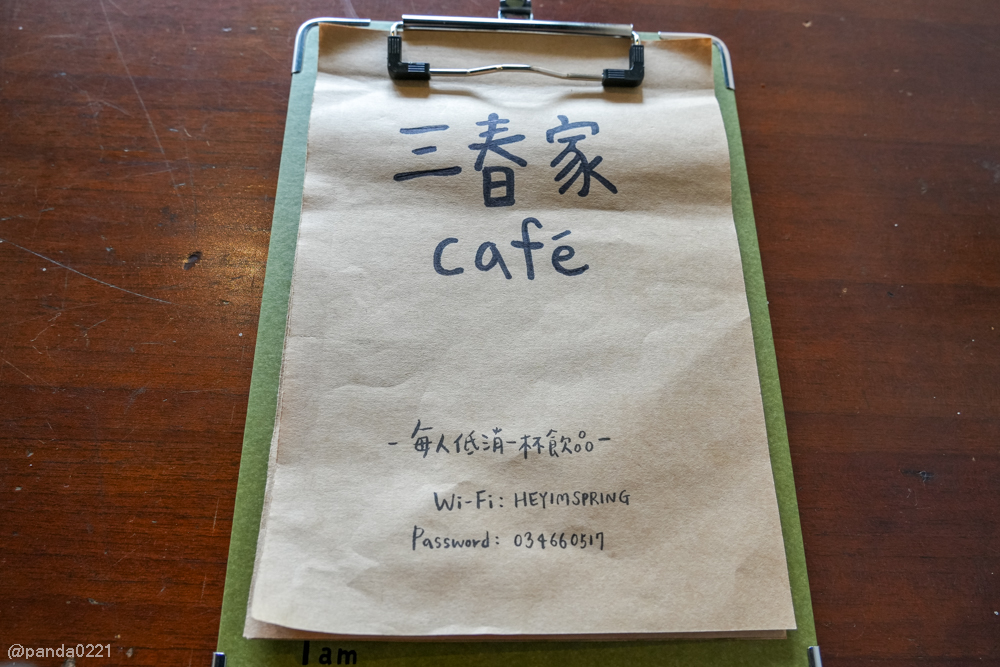 三春家
café
- 每人低消一杯飲品 -
Wi-Fi: HEYIMSPRING
Password: 034660517
I am
@panda0221